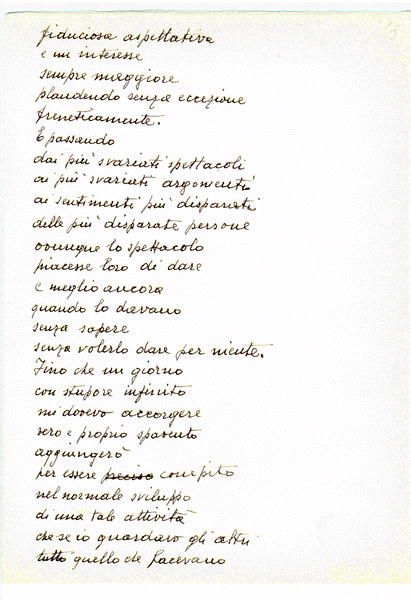 fiduciosa aspettativa
e un interesse
sempre maggiore
plaudendo senza eccezione
freneticamente.
E passando
dai più svariati spettacoli
ai più svariati argomenti
ai sentimenti più disparati
delle più disparate persone
ovunque lo spettacolo
piacesse loro di dare
e meglio ancora
quando lo davano
senza sapere
senza volerlo dare per niente.
Fino che un giorno
con stupore infinito
mi dovevo accorgere
vero e proprio spavento
aggiungerò
per essere preciso compito
nel normale sviluppo
di una tale attività
che se io guardavo gli altri
tutto quello che facevano